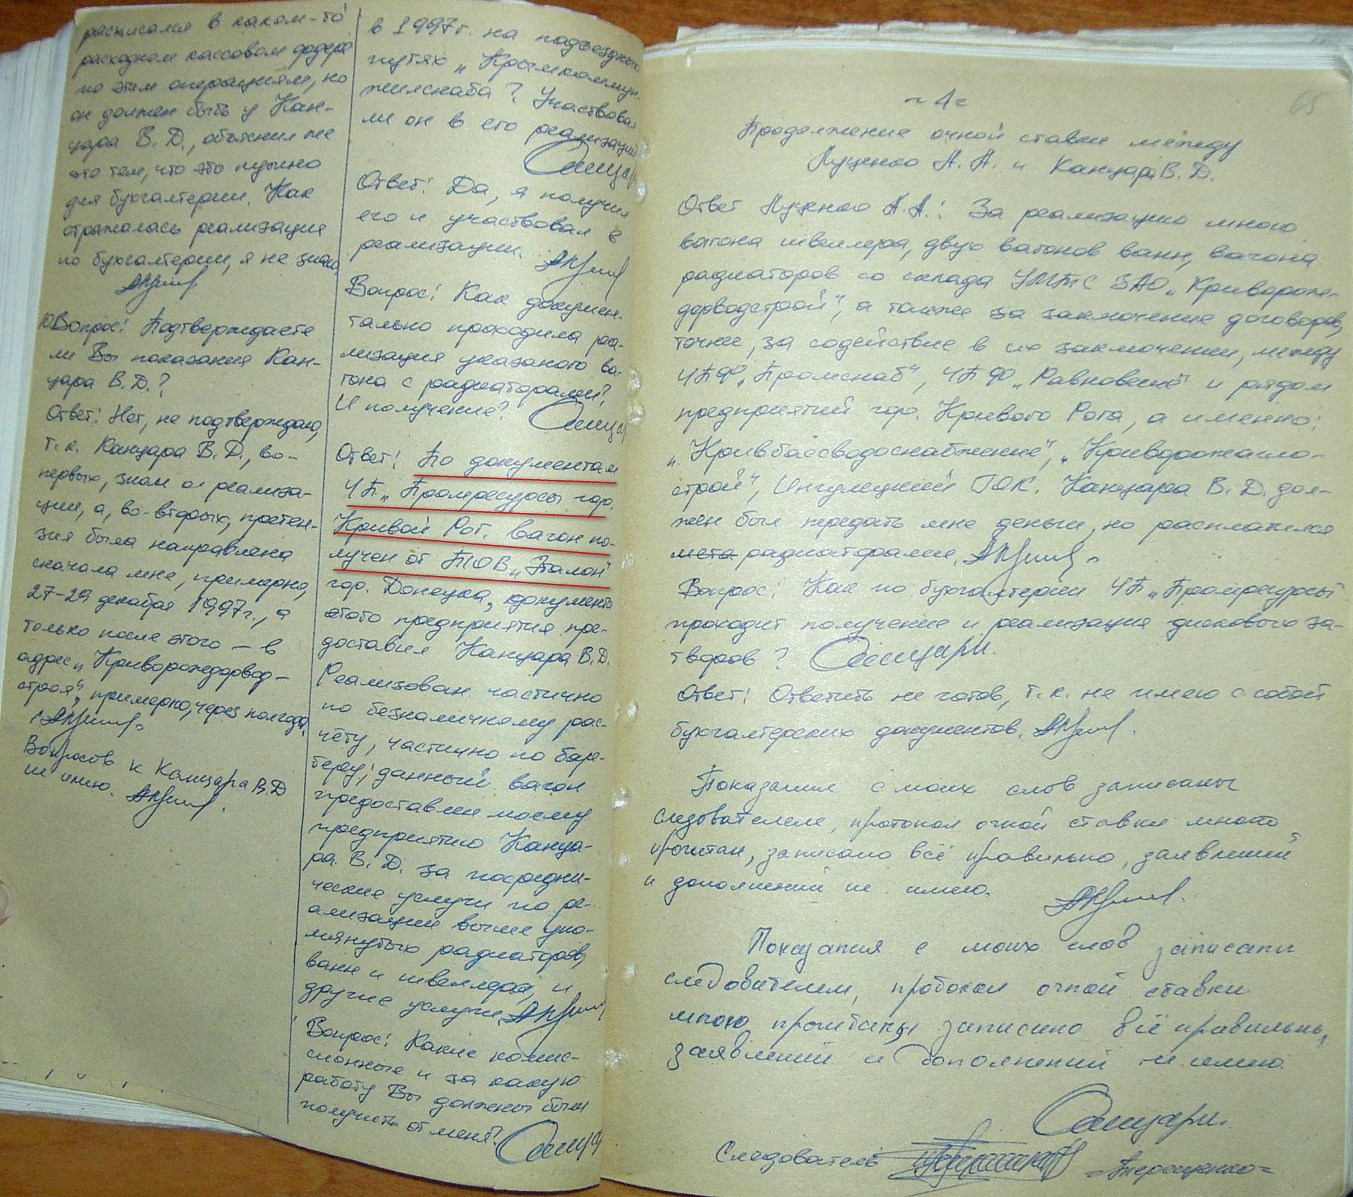 расписался в каком-то
расходном кассовом ордере
по этим операциям, но
он должен быть у Кан-
цара В. Д., объяснил же
это тем, что это нужно
для бухгалтерии. Как
отражалась реализация
по бухгалтерии, я не знаю
Вопрос: Подтверждаете
ли Вы показания Кан-
цара В. Д.?
Ответ: Нет, не подтверждаю,
т. к. Канцара В. Д., во-
первых, знал о реализа-
ции, а, во-вторых, претен-
зия была направлена
сначала мне, примерно,
27-29 декабря 1997г., а
только после этого — в
адрес „Криворождорвод-
строя", примерно, через полгода.
Вопросов к Канцара В.Д
не имею.
в 1997г. на подъездных
путях „Крымкоммун-
жилснаба"? Участвовал
ли он в его реализации
Ответ: Да, я получил
его и участвовал в
реализации.
Вопрос: Как докумен-
тально проходила реа-
лизация указаного ва-
гона с радиаторами?
И получение?
Ответ: По документам
ЧП „Промресурсы гор.
Кривой Рог. вагон по-
лучен от ТОВ „Эталон"
гор. Донецка, документы
этого предприятия пре-
доставил Канцара В.Д.
Реализован частично
по безналичному рас-
чёту, частично по бар-
теру; данный вагон
предоставил моему
предприятию Канца-
ра В. Д. за посредни-
ческие услуги по ре-
ализации выше упо-
мянутых радиаторов,
ванн и швеллера, и
другие услуги.
Вопрос: Какие комис-
сионные и за какую
работу Вы должны были
получить от меня?
65
- 4 -
Продолжение очной ставки между
Луценко А. А. и Канцара В. Д.
Ответ Луценко А. А.: За реализацию мною
вагона швеллера, двух вагонов ванн, вагона
радиаторов со склада УПТК ЗАО „Криворож-
дорводстрой", а также за заключение договоров,
точнее, за содействие в их заключении, между
ЧПФ „Промснаб", ЧПФ „Равновесие" и рядом
предприятий гор. Кривого Рога, а именно:
„Кривбассводоснабжение", „Криворожагло-
строй", Ингулецкий ГОК. Канцара В. Д. дол-
жен был передать мне деньги, но расплатился
радиаторами.
Вопрос: Как по бухгалтерии ЧП „Промресурсы"
проходит получение и реализация дискового за-
творов?
Ответ: Ответить не готов, т. к. не имею с собой
бухгалтерских документов.
Показания с моих слов записаны
следователем, протокол очной ставки мною
прочитан, записано всё правильно, заявлений
и дополнений не имею.
Показания с моих слов записаны
следователем, протокол очной ставки
мною прочитан, записано всё правильно,
заявлений и дополнений не имею
Следователь - Терещенко -